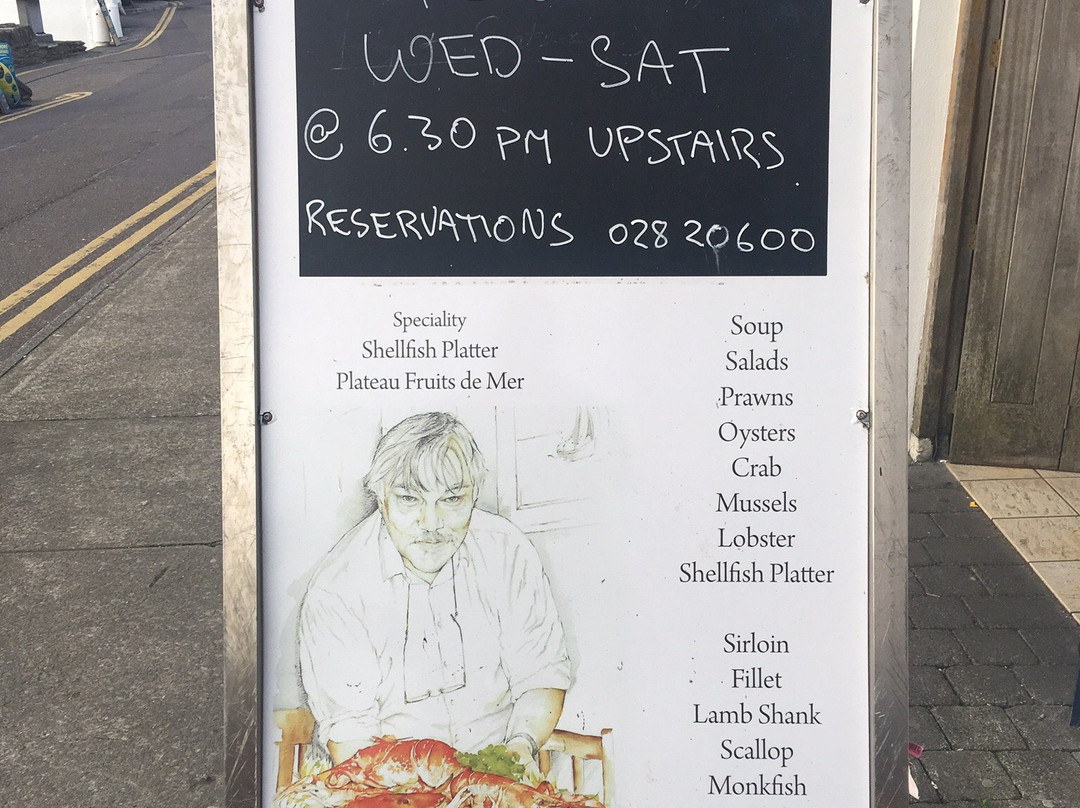 WED - SAT
@ 6.30 PM UPSTAIRS.
RESERVATIONS 028 20600
Speciality
Shellfish Platter
Plateau Fruits de Mer
Soup
Salads
Prawns
Oysters
Crab
Mussels
Lobster
Shellfish Platter
Sirloin
Fillet
Lamb Shank
Scallop
Monkfish